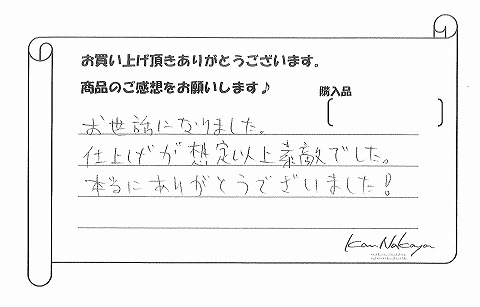 お買い上げ頂きありがとうございます。
商品のご感想をお願いします♪
購入品
お世話になりました。
仕上げが想定以上素敵でした。
本当にありがとうございました!
Kan Nakaya